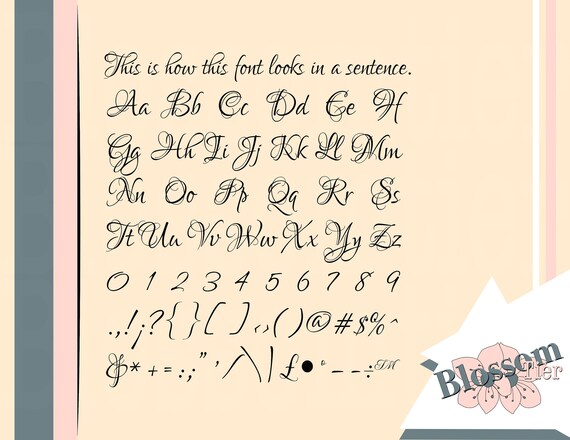 This is how this font looks in a sentence.
Aa Bb Cc Dd Ee Ff
Gg Hh Ii Jj Kk Ll Mm
Nn Oo Pp Qq Rr Ss
Tt Uu Vv Ww Xx Yy Zz
0 1 2 3 4 5 6 7 8 9
.,!¡?{}[]‹›()@#$%^
&*+=:;”’/\|£•°–—÷™
Blossom
Tier